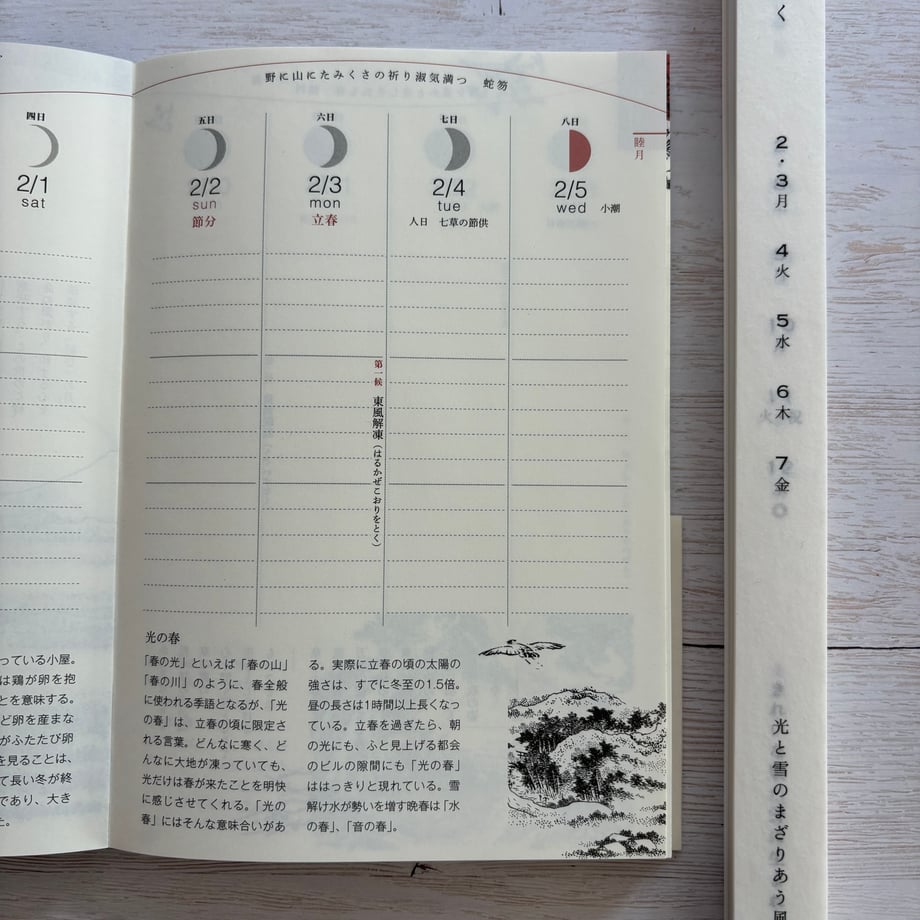 四日
2/1
sat
っている小屋。
は鶏が卵を抱
とを意味する。
ど卵を産まな
がふたたび卵
を見ることは、
て長い冬が終
であり、大き
た。
野に山にたみくさの祈り淑気満つ　蛇笏
睦月
五日
2/2
sun
節分
六日
2/3
mon
立春
七日
2/4
tue
人日　七草の節供
八日
2/5
wed　小潮
第一候　東風解凍（はるかぜこおりをとく）
光の春
「春の光」といえば「春の山」
「春の川」のように、春全般
に使われる季語となるが、「光
の春」は、立春の頃に限定さ
れる言葉。どんなに寒く、ど
んなに大地が凍っていても、
光だけは春が来たことを明快
に感じさせてくれる。「光の
春」にはそんな意味合いがあ
る。実際に立春の頃の太陽の
強さは、すでに冬至の1.5倍。
昼の長さは1時間以上長くなっ
ている。立春を過ぎたら、朝
の光にも、ふと見上げる都会
のビルの隙間にも「光の春」
ははっきりと現れている。雪
解け水が勢いを増す晩春は「水
の春」、「音の春」。
く
2・3月
4火
5水
6木
7金
光と雪のまざりあう風